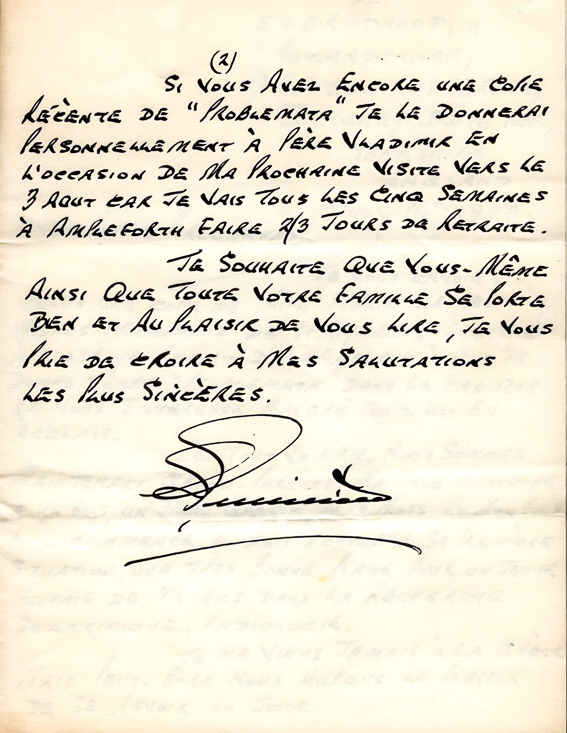 (2)
SI VOUS AVEZ ENCORE UNE COPIE
RÉCÈNTE DE "PROBLEMATA" JE LE DONNERAI
PERSONNELLEMENT À PÈRE VLADIMIR EN
L'OCCASION DE MA PROCHAINE VISITE VERS LE
3 AOUT CAR JE VAIS TOUS LES CINQ SEMAINES
À AMPLEFORTH FAIRE 2/3 JOURS DE RETRAITE.
JE SOUHAITE QUE VOUS-MÊME
AINSI QUE TOUTE VOTRE FAMILLE SE PORTE
BEN ET AU PLAISIR DE VOUS LIRE, JE VOUS
PRIE DE CROIRE À MES SALUTATIONS
LES PLUS SINCÈRES.